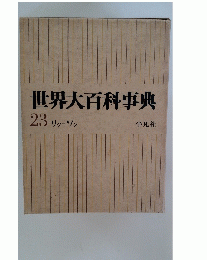 世界大百科事典
23 リク-ワン
平凡社